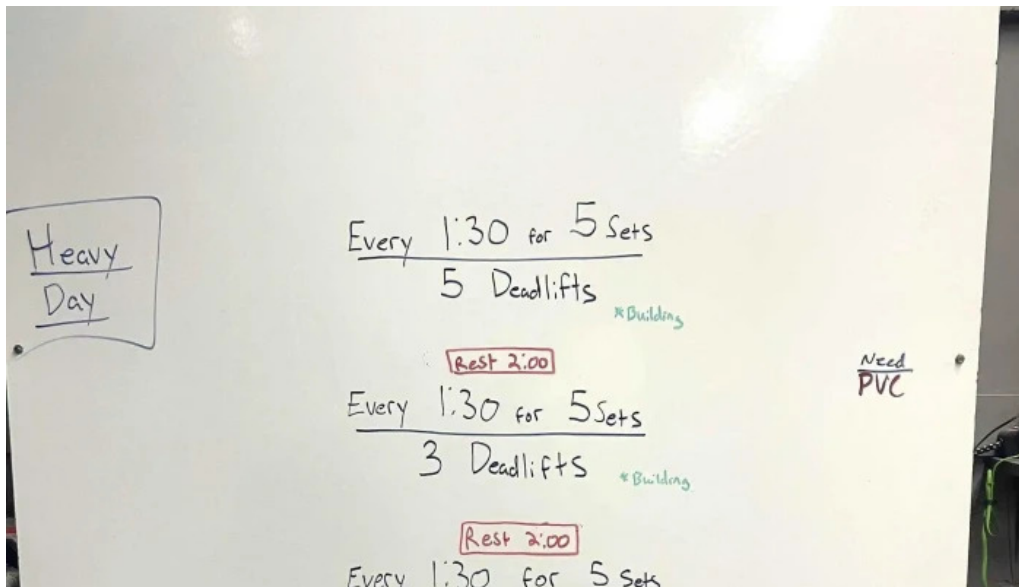 Heavy
Day
Every 1:30 for 5 Sets
5 Deadlifts
*Building
Rest 2:00
Need
PVC
Every 1:30 for 5 Sets
3 Deadlifts
*Building
Rest 2:00
Every 1:30 for 5 Sets